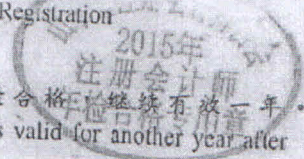 Registration
2015年
注册会计师
年检合格专用章
合格,继续有效一年
valid for another year after